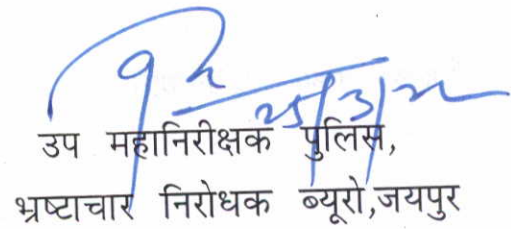 25/3/22
उप महानिरीक्षक पुलिस,
भ्रष्टाचार निरोधक ब्यूरो,जयपुर